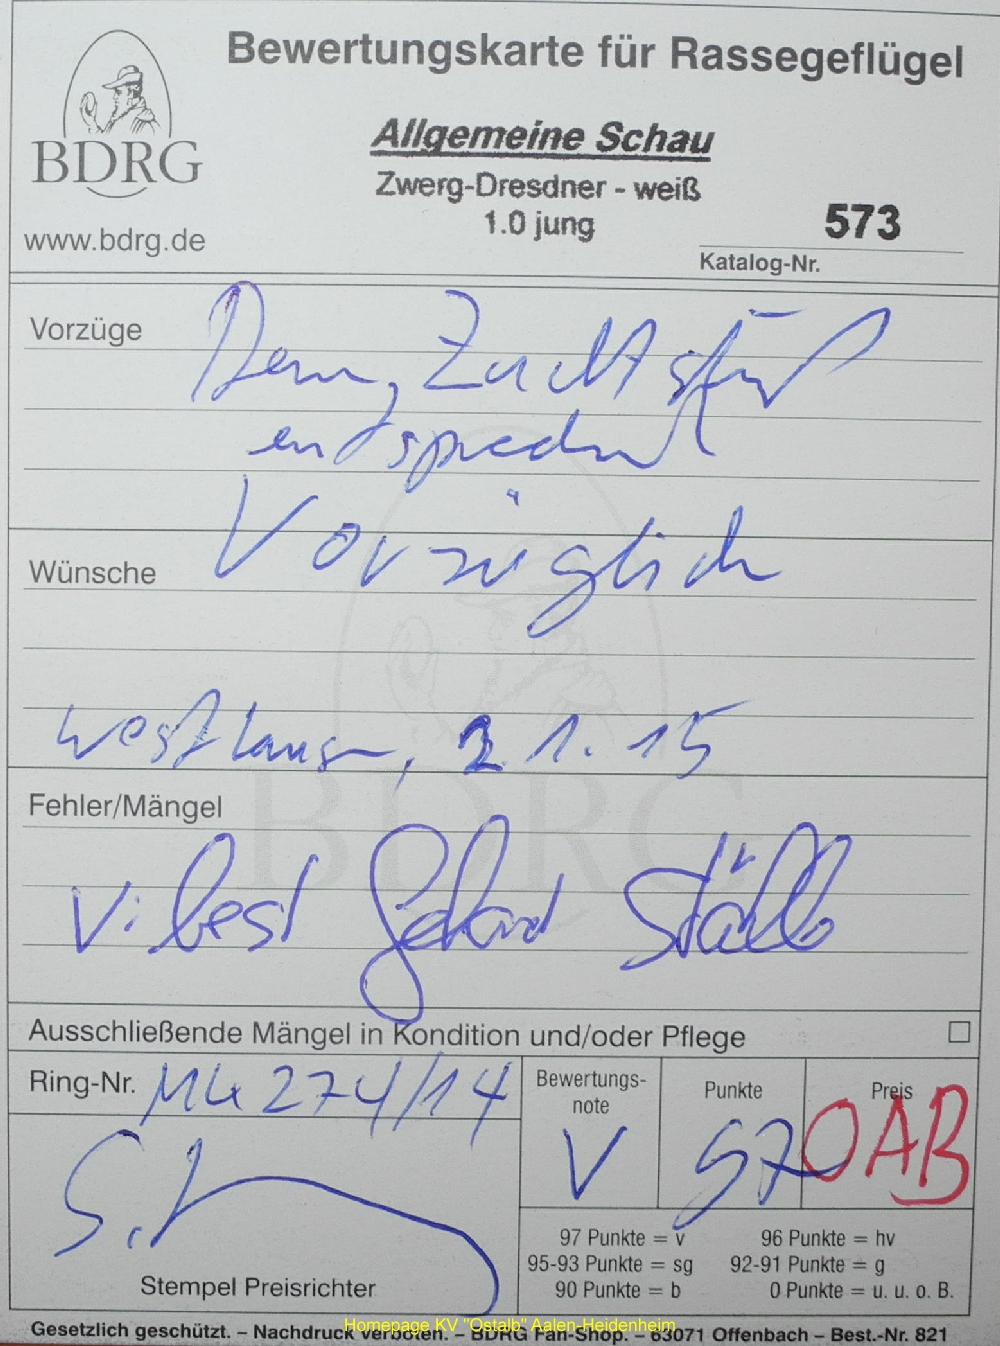 Bewertungskarte für Rassegeflügel
BDRG
www.bdrg.de
Allgemeine Schau
Zwerg-Dresdner - weiß
1.0 jung
573
Katalog-Nr.
Vorzüge
Dem Zuchtstand
entsprechend
Vorzüglich
Wünsche
2.1.15
Fehler/Mängel
V:
Ausschließende Mängel in Kondition und/oder Pflege
Ring-Nr. 274/14
Bewertungs-
note
V
Punkte
97
Preis
OAB
Stempel Preisrichter
97 Punkte = v 96 Punkte = hv
95-93 Punkte = sg 92-91 Punkte = g
90 Punkte = b 0 Punkte = u. u. o. B.
Homepage KV "Ostalb" Aalen-Heidenheim
Gesetzlich geschützt. – Nachdruck verboten. – BDRG Fan-Shop. – 63071 Offenbach – Best.-Nr. 821